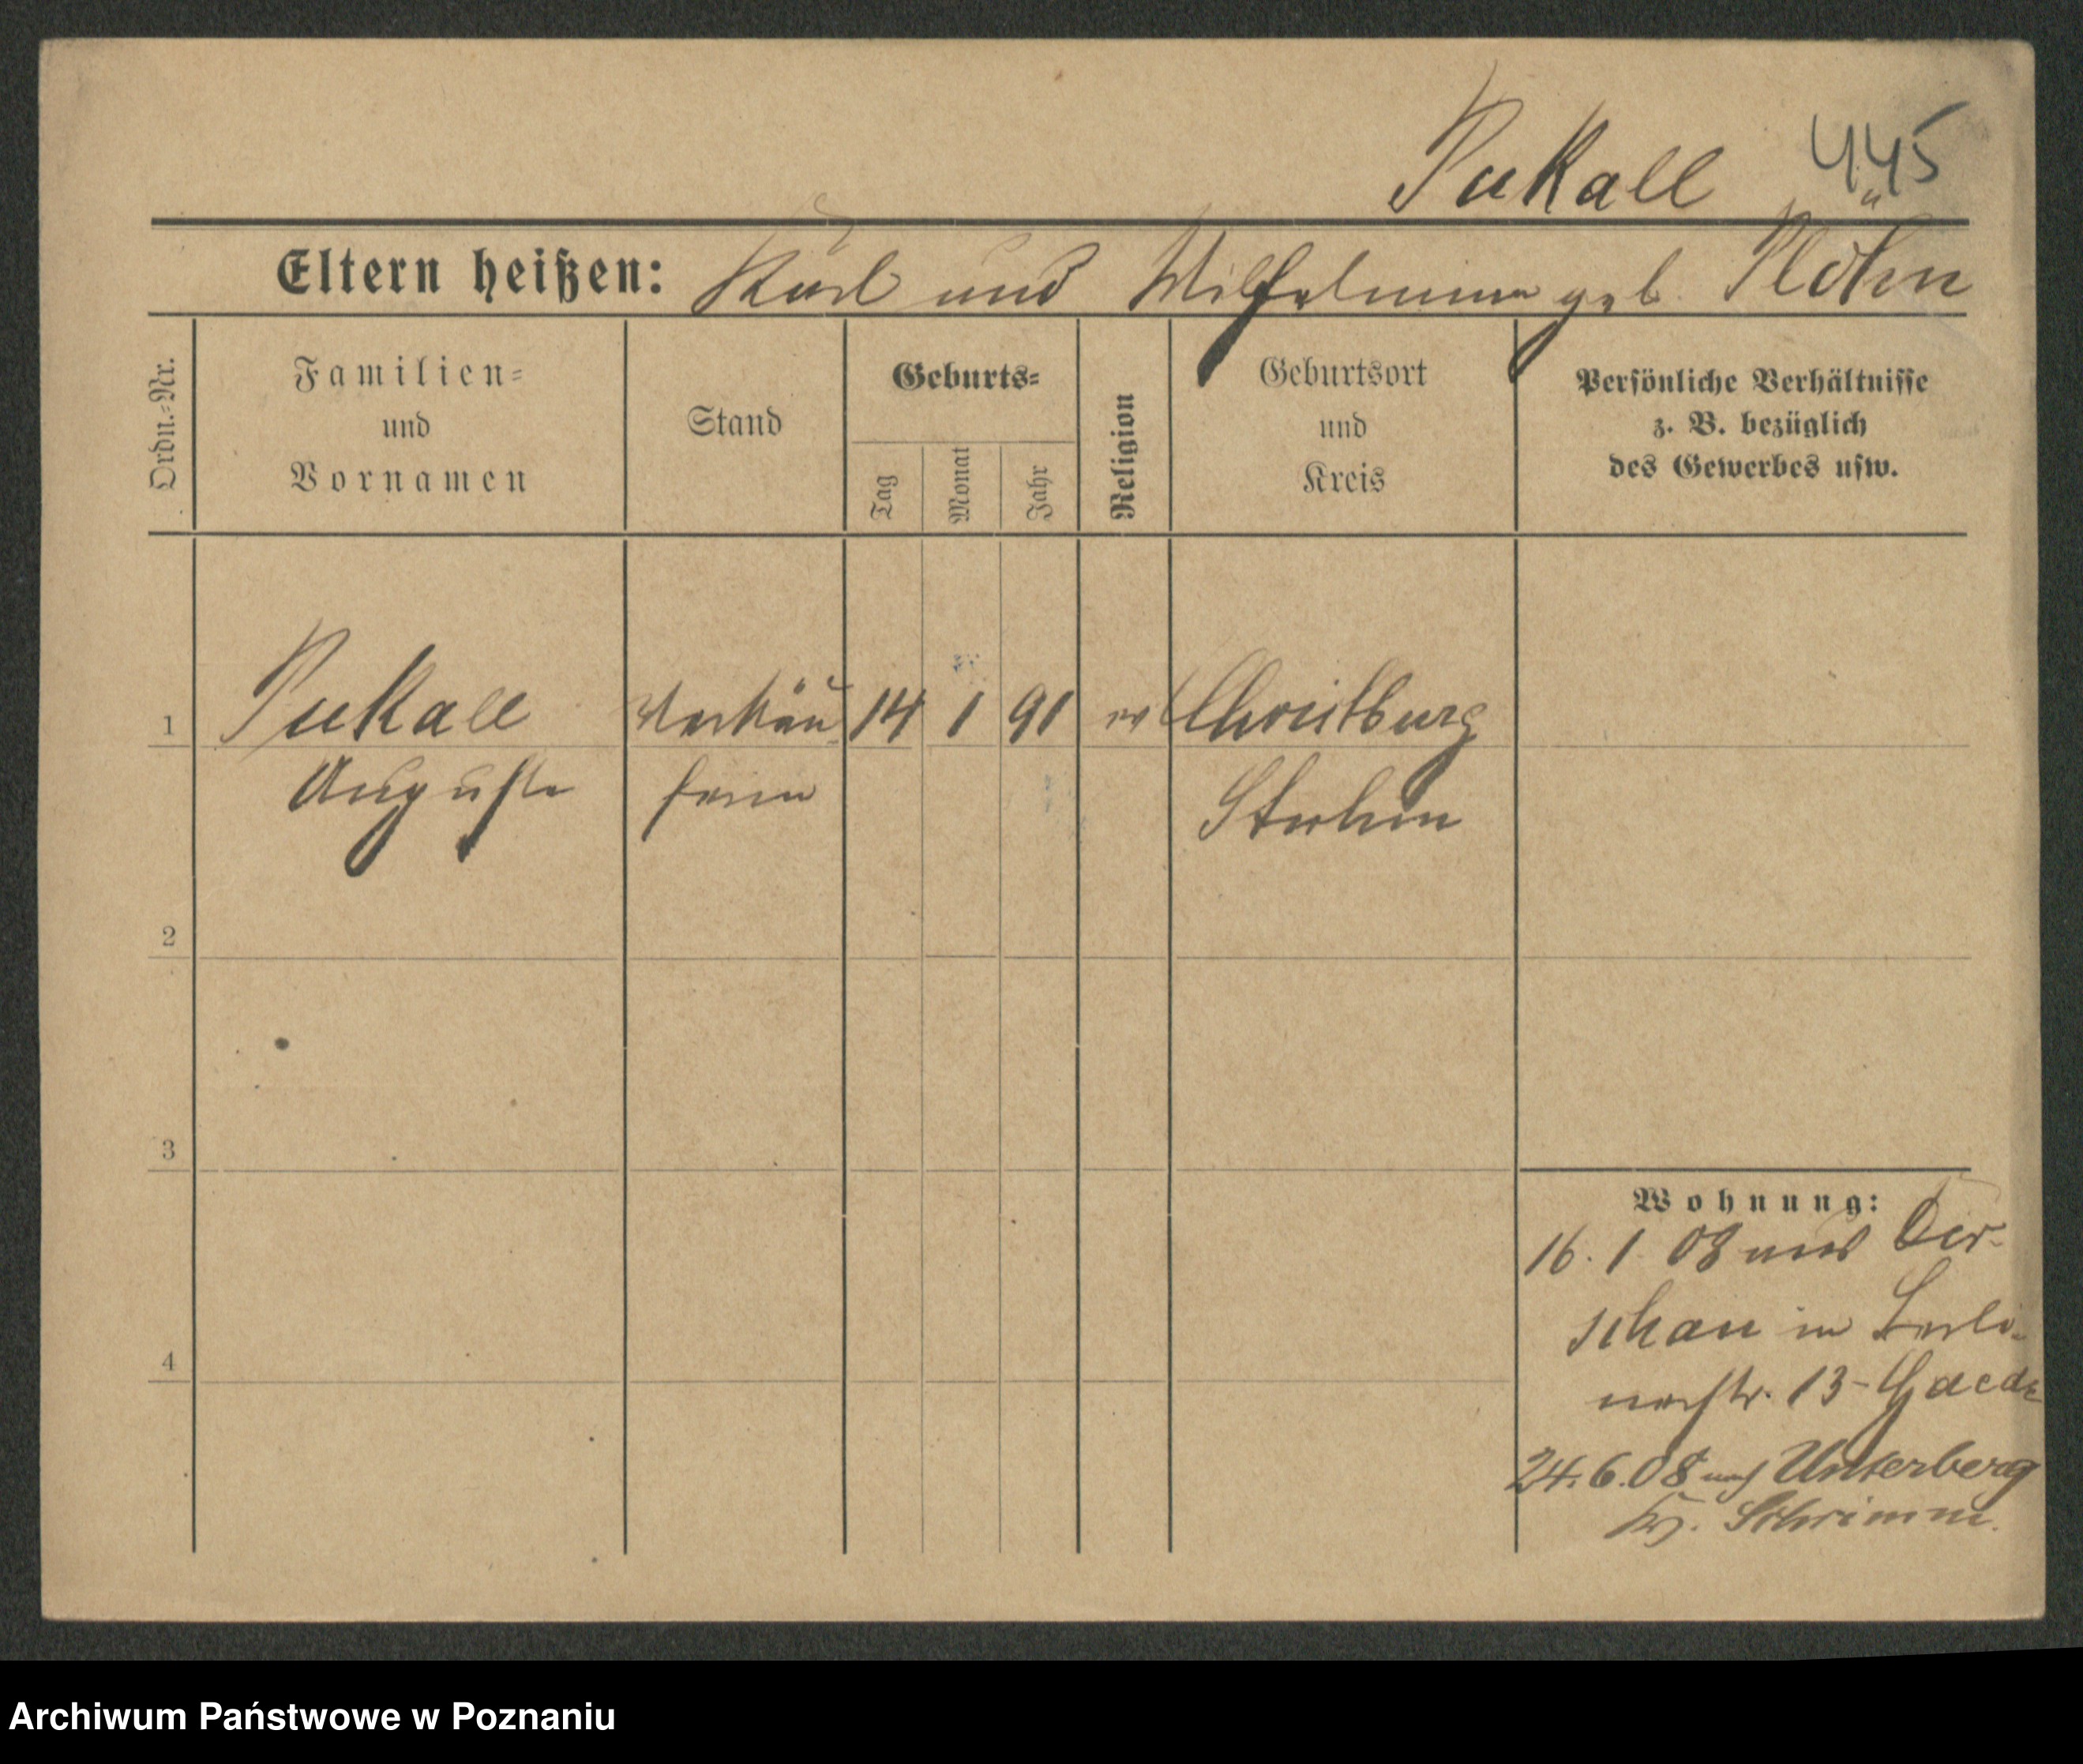 445
Pukall
Eltern heißen: Karl und Wilhelmine geb. Plöhn
Ordn.-Nr.
Familien-
und
Vornamen
Stand
Geburts-
Tag
Monat
Jahr
Religion
Geburtsort
und
Kreis
Persönliche Verhältnisse
z. B. bezüglich
des Gewerbes usw.
1 Pukall Verkäu 14 1 91 ev Christburg
Auguste ferin Stuhm
2
3
4
Wohnung:
16. 1. 08 aus Dir-
schau in
nerstr. 13 - Gaede
24. 6. 08 nach Unterberg
Kr. Schrimm.
Archiwum Państwowe w Poznaniu